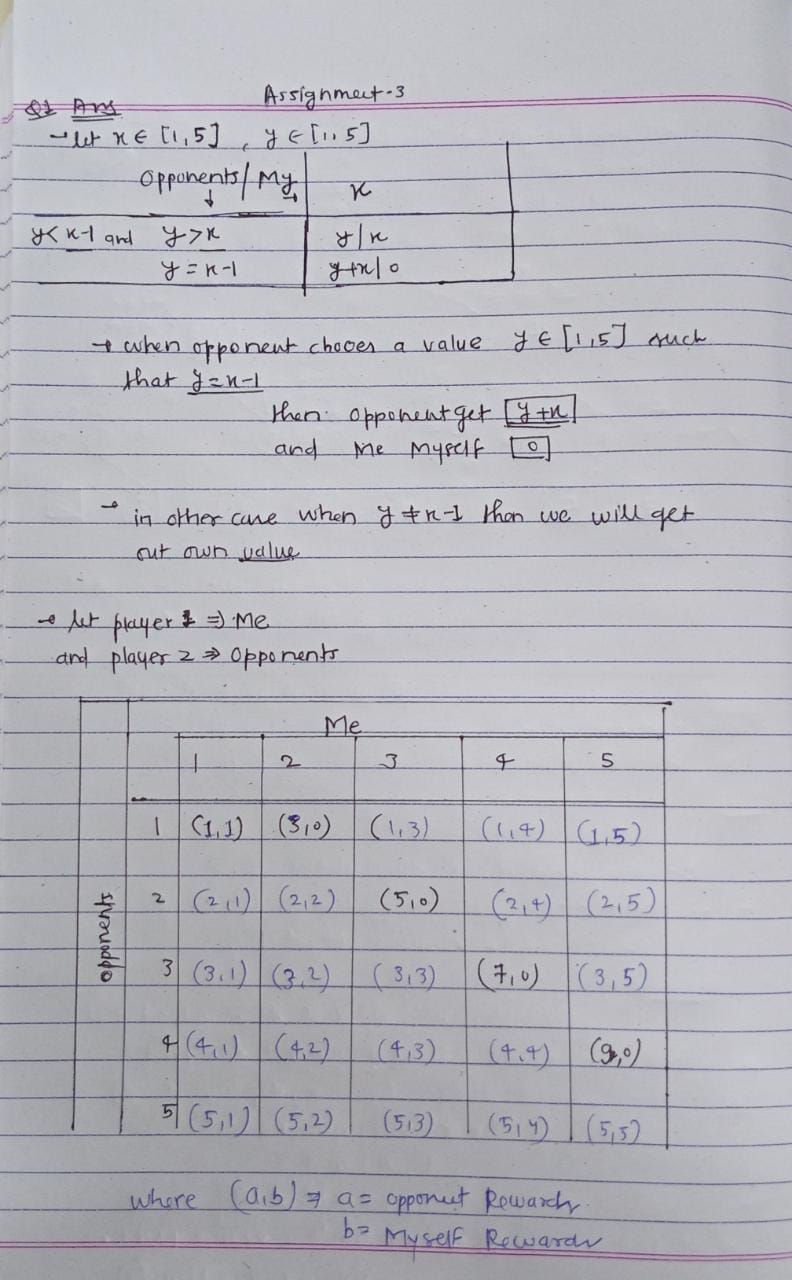 Assignment-3
Q1 Ans
→ let x ∈ [1,5] , y ∈ [1,5]
Opponents/My x
↓ →
y<x-1 and y>x y/x
y=x-1 y+x/0
→ when opponent chooes a value y ∈ [1,5] such
that y=x-1
then opponent get y+x
and Me Myself 0
→ in other case when y ≠ x-1 then we will get
out own value
→ let player 1 ⇒ Me
and player 2 ⇒ Opponents
Me
1 2 3 4 5
1 (1,1) (3,0) (1,3) (1,4) (1,5)
opponents
2 (2,1) (2,2) (5,0) (2,4) (2,5)
3 (3,1) (3,2) (3,3) (7,0) (3,5)
4 (4,1) (4,2) (4,3) (4,4) (9,0)
5 (5,1) (5,2) (5,3) (5,4) (5,5)
where (a,b) ⇒ a = opponent Rewards
b= Myself Rewards